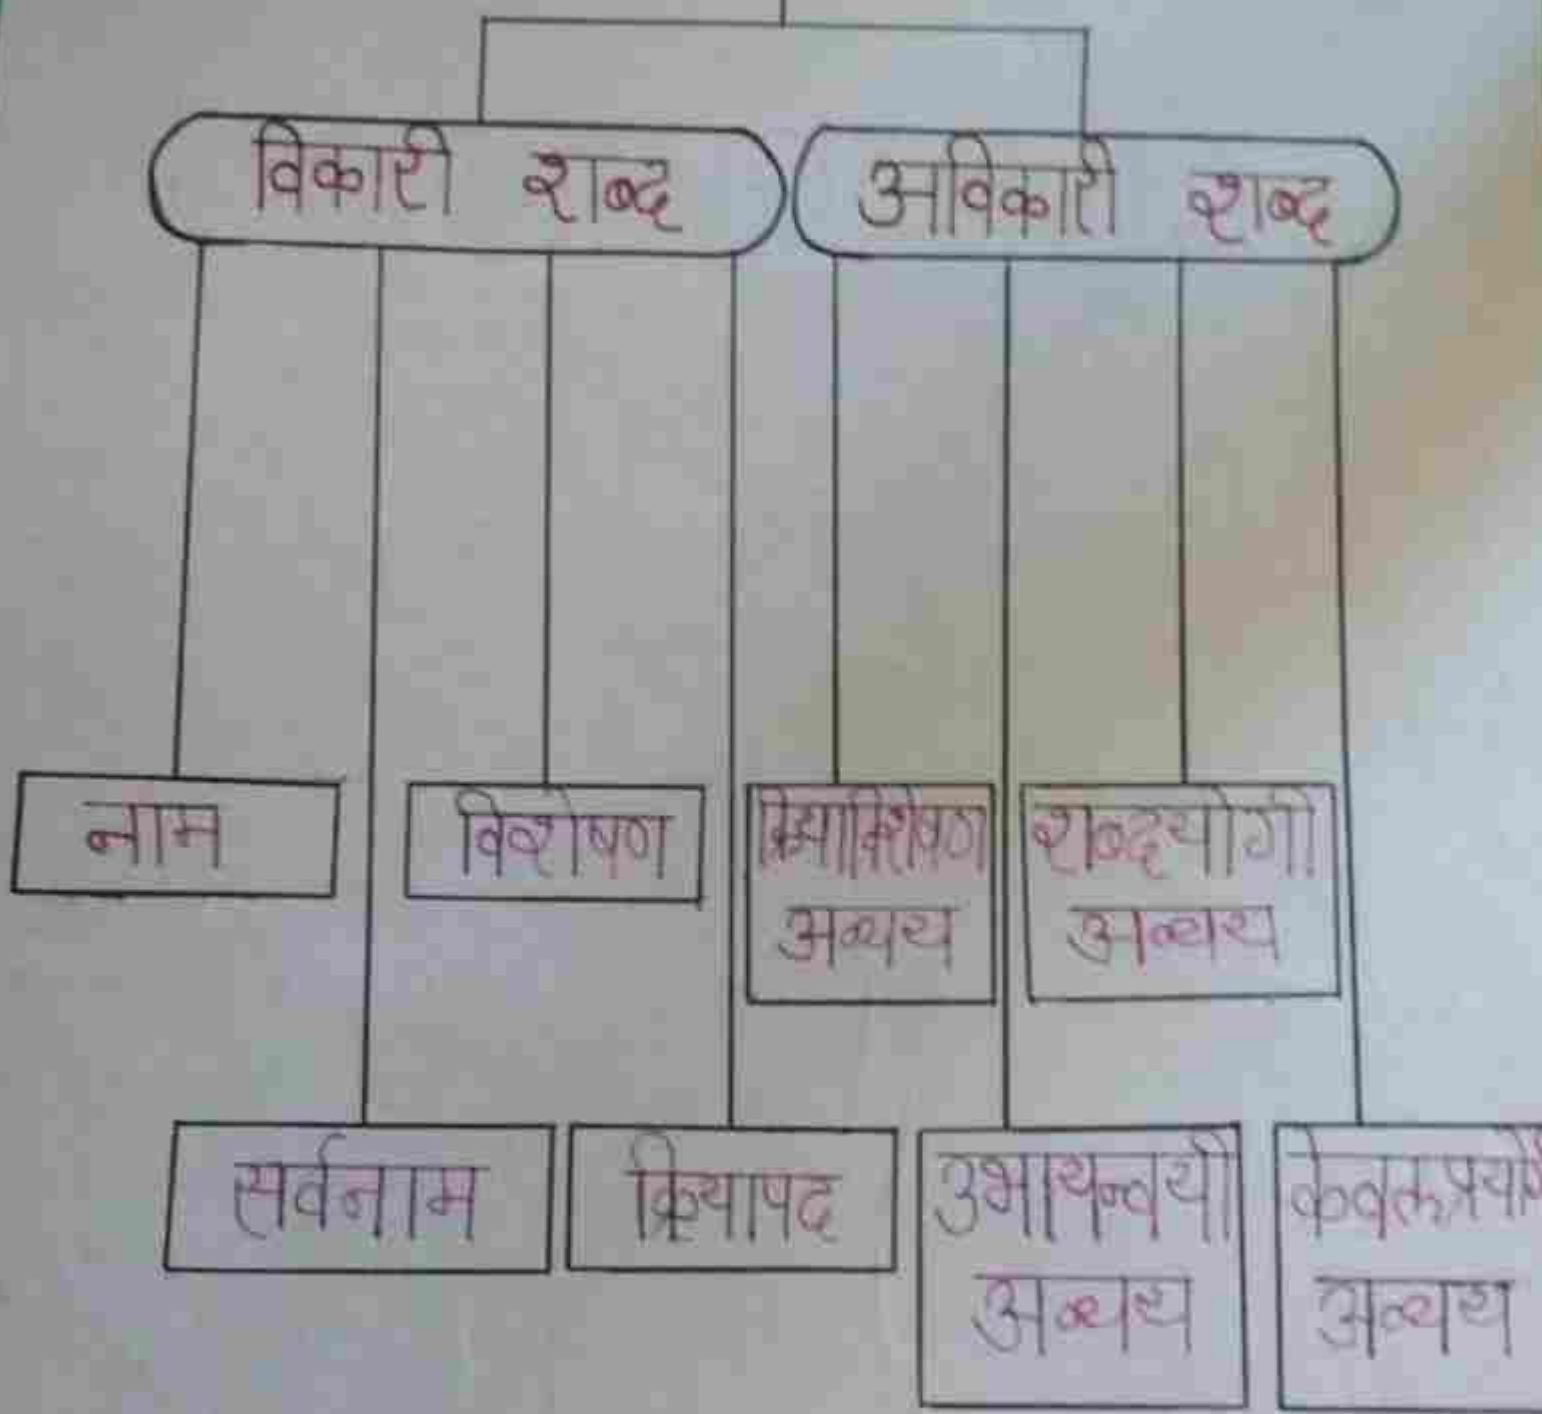 विकारी शब्द
अविकारी शब्द
नाम
विशेषण
क्रियाविशेषण
अव्यय
शब्दयोगी
अव्यय
सर्वनाम
क्रियापद
उभायन्वयी
अव्यय
केवलप्रयो
अव्यय